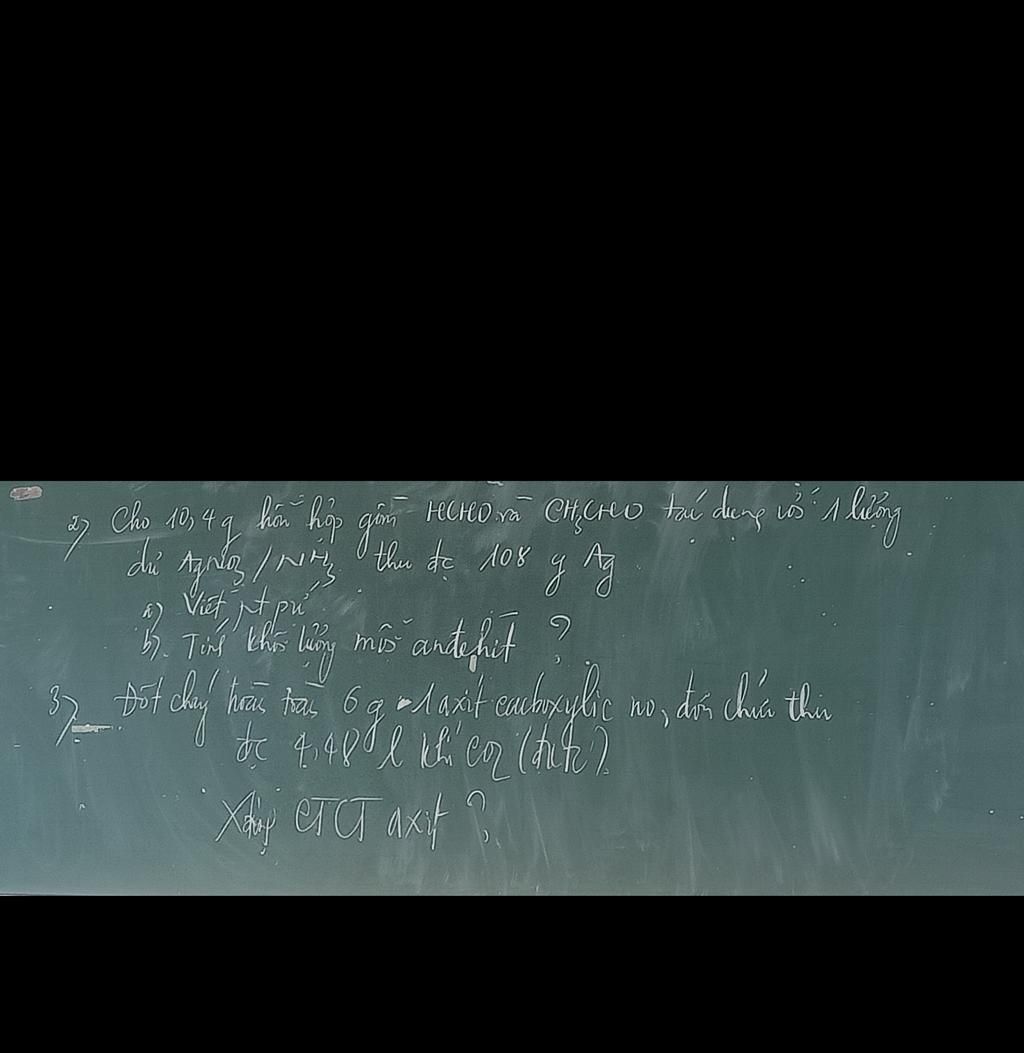 2) Cho 10,4 g hỗn hợp gồm HCHO và CH3CHO tác dụng với 1 lượng
dư AgNO3/NH3 thu đc 108 g Ag
a) Viết pt pư
b). Tính khối lượng mỗi anđehit ?
3) Đốt cháy hoàn toàn 6 g 1 axit cacboxylic no, đơn chức thu
đc 4,48 l khí CO2 (đktc)
Xđịnh CTCT axit ?